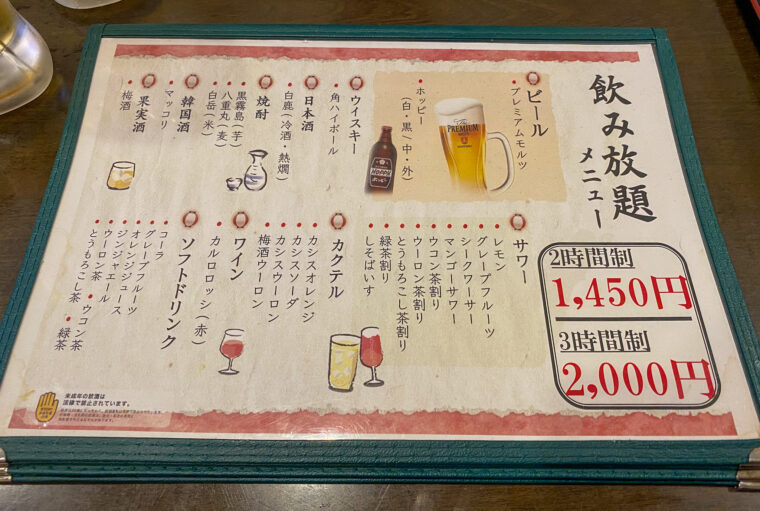 飲み放題
メニュー
2時間制
1,450円
3時間制
2,000円
ビール
プレミアムモルツ
ホッピー
(白・黒/中・外)
The
PREMIUM
HOPPY
ホッピー
ウイスキー
角ハイボール
日本酒
白鹿(冷酒・熱燗)
焼酎
黒霧島(芋)
八重丸(麦)
白岳(米)
韓国酒
マッコリ
果実酒
梅酒
サワー
レモン
グレープフルーツ
シークワーサー
マンゴーサワー
ウコン茶割り
ウーロン茶割り
とうもろこし茶割り
緑茶割り
しそばいす
カクテル
カシスオレンジ
カシスソーダ
カシスウーロン
梅酒ウーロン
ワイン
カルロロッシ(赤)
ソフトドリンク
コーラ
グレープフルーツ
オレンジジュース
ジンジャエール
ウーロン茶
とうもろこし茶
ウコン茶
緑茶
未成年の飲酒は
法律で禁止されています。